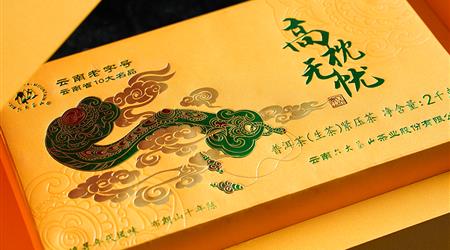 云南老字号
云南省10大名品
高枕
无忧
普洱茶(生茶)紧压茶 净含量:2千
云南六大茶山茶业股份有限公
布朗山千年陈